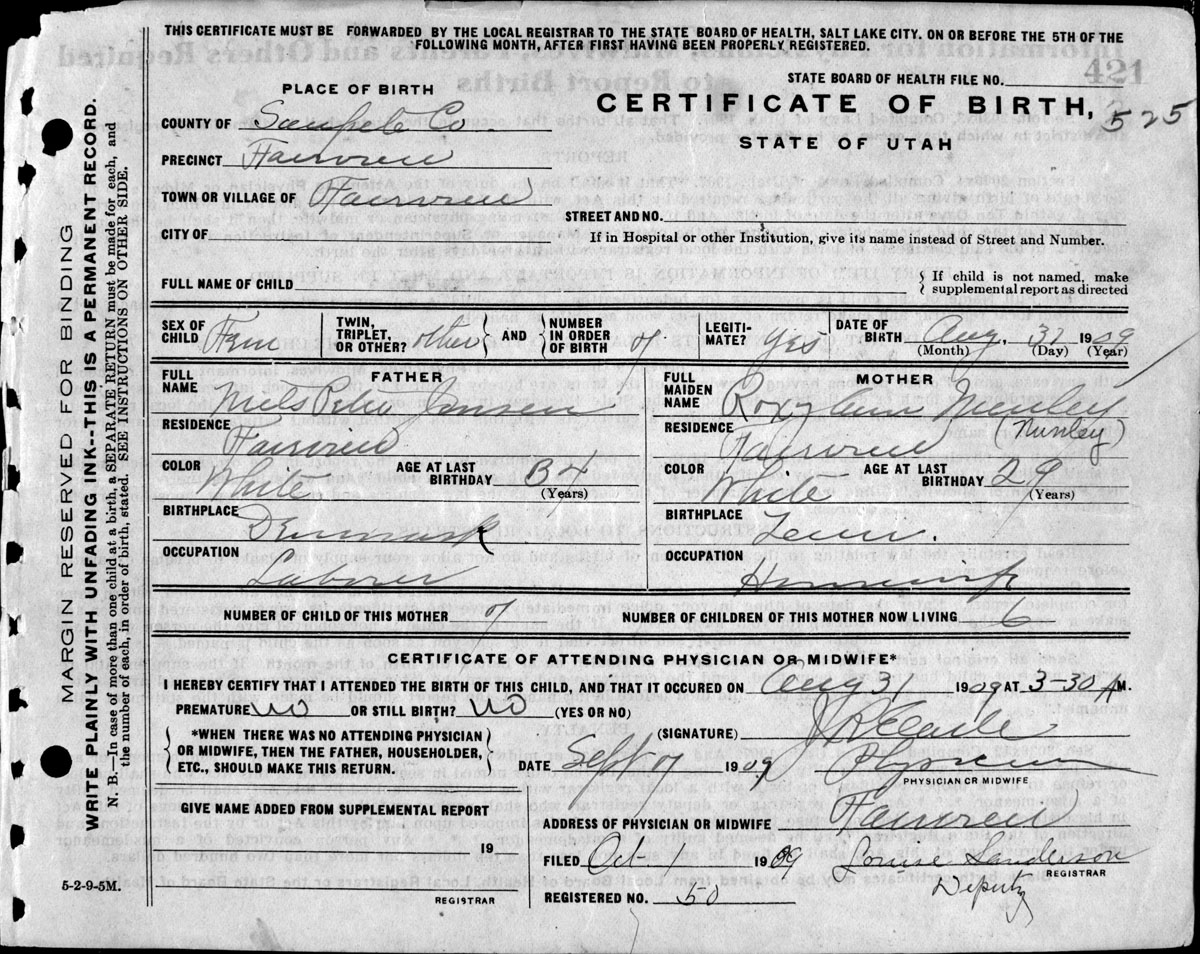 THIS CERTIFICATE MUST BE FORWARDED BY THE LOCAL REGISTRAR TO THE STATE BOARD OF HEALTH, SALT LAKE CITY. ON OR BEFORE THE 5TH OF THE
FOLLOWING MONTH, AFTER FIRST HAVING BEEN PROPERLY REGISTERED.
421
STATE BOARD OF HEALTH FILE NO.
PLACE OF BIRTH
CERTIFICATE OF BIRTH, 525
STATE OF UTAH
COUNTY OF Sanpete Co.
PRECINCT Fairview
TOWN OR VILLAGE OF Fairview
STREET AND NO.
CITY OF
If in Hospital or other Institution, give its name instead of Street and Number.
FULL NAME OF CHILD
If child is not named, make
supplemental report as directed
SEX OF CHILD Fem
TWIN, TRIPLET, OR OTHER? other AND NUMBER IN ORDER OF BIRTH 7
LEGITIMATE? Yes
DATE OF BIRTH Aug. 31 1909
(Month) (Day) (Year)
FATHER
FULL NAME Niels Peter Jensen
RESIDENCE Fairview
COLOR White AGE AT LAST BIRTHDAY 34
(Years)
BIRTHPLACE Denmark
OCCUPATION Laborer
MOTHER
FULL MAIDEN NAME Roxy Ann Nunley
(Nunley)
RESIDENCE Fairview
COLOR White AGE AT LAST BIRTHDAY 29
(Years)
BIRTHPLACE Tenn.
OCCUPATION Housewife
NUMBER OF CHILD OF THIS MOTHER 7 NUMBER OF CHILDREN OF THIS MOTHER NOW LIVING 6
CERTIFICATE OF ATTENDING PHYSICIAN OR MIDWIFE*
I HEREBY CERTIFY THAT I ATTENDED THE BIRTH OF THIS CHILD, AND THAT IT OCCURED ON Aug 31 1909 AT 3-30 A M.
PREMATURE no OR STILL BIRTH? no (YES OR NO)
*WHEN THERE WAS NO ATTENDING PHYSICIAN
OR MIDWIFE, THEN THE FATHER, HOUSEHOLDER,
ETC., SHOULD MAKE THIS RETURN.
(SIGNATURE)
DATE Sept 7 1909 Physician
PHYSICIAN OR MIDWIFE
GIVE NAME ADDED FROM SUPPLEMENTAL REPORT
19
REGISTRAR
ADDRESS OF PHYSICIAN OR MIDWIFE Fairview
FILED Oct 1 1909 Louise Sanderson
REGISTRAR
Deputy
REGISTERED NO. 50
5-2-9-5M.
MARGIN RESERVED FOR BINDING
WRITE PLAINLY WITH UNFADING INK--THIS IS A PERMANENT RECORD.
N. B. In case of more than one child at a birth, a SEPARATE RETURN must be made for each, and
the number of each, in order of birth, stated. SEE INSTRUCTIONS ON OTHER SIDE.